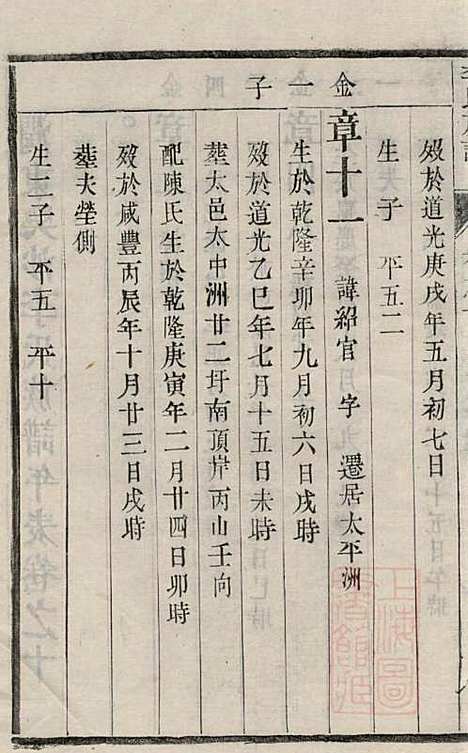 歿於道光庚戌年五月初七日
生一子 平五二
金一子
章十一 諱紹官 字 遷居太平洲
生於乾隆辛卯年九月初六日戌時
歿於道光乙巳年七月十五日未時
塟太邑太中洲廿二圩南頂岸丙山壬向
配陳氏生於乾隆庚寅年二月廿四日卯時
歿於咸豐丙辰年十月廿三日戌時
塟夫塋側
生二子 平五 平十
上海圖